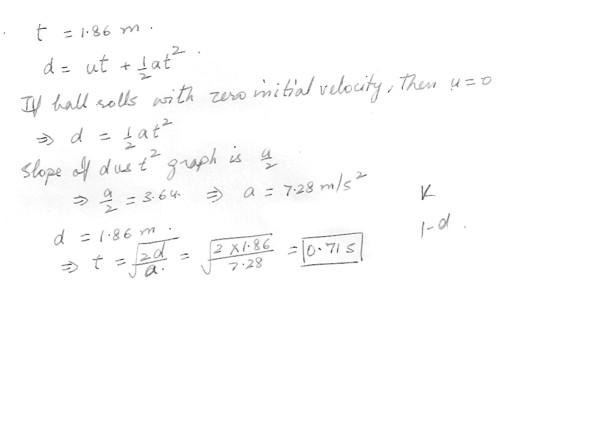 t = 1.86 m.
d = ut + 1/2 at².
If ball rolls with zero initial velocity, then u = 0
⇒ d = 1/2 at²
Slope of d vs t² graph is a/2
⇒ a/2 = 3.64 ⇒ a = 7.28 m/s²
K
d = 1.86 m.
1-d.
⇒ t = √(2d/a.) = √(2×1.86/7.28) = 0.71 s